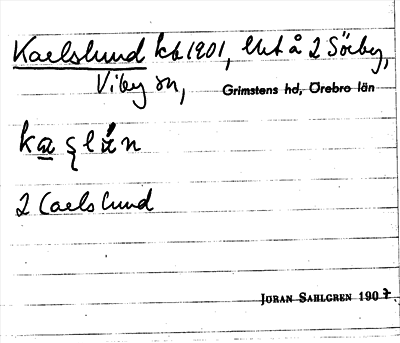 Karlslund kb 1901, lht å 2 Sörby,
Viby sn, Grimstens hd, Örebro län
2 Carlslund
JÖRAN SAHLGREN 1907.